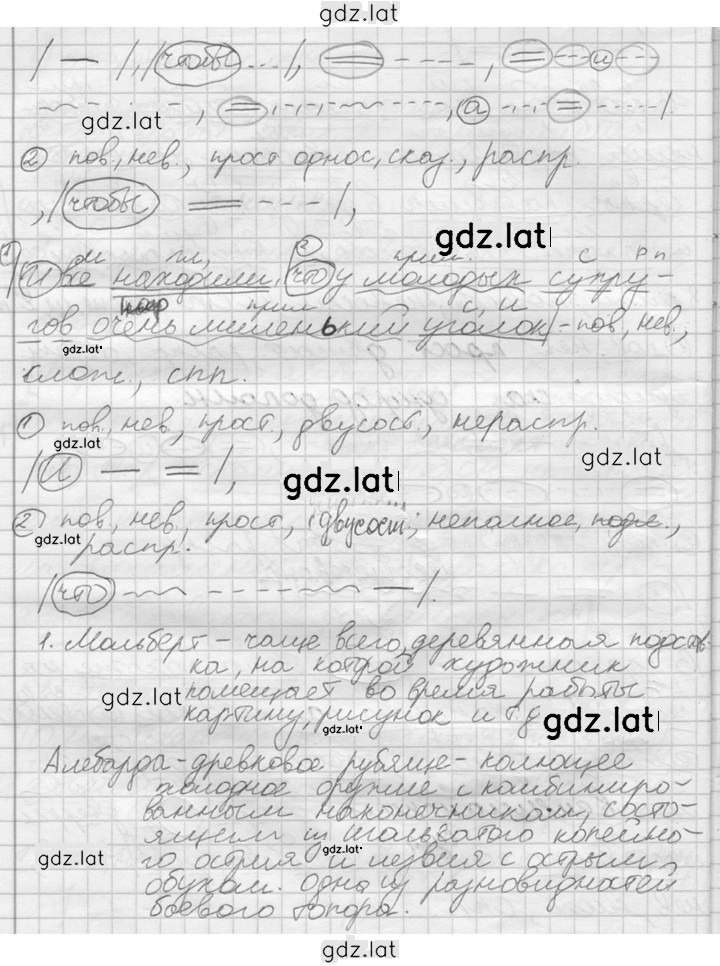 gdz.lat
/ — /, /чтобы .../, = - - - -, = - - - и - - -
gdz.lat
, = , а = /.
② пов., нев., прост. однос., сказ., распр.
, /чтобы = - - - /,
gdz.lat
① м гл, ② прил. с рп
И все находили, что у молодых супру-
нар прил с, и
гов очень миленький уголок - пов., нев.,
gdz.lat
слож., спп.
① пов., нев., прост., двусост., нераспр.
gdz.lat
gdz.lat
/И — = /,
gdz.lat
② пов., нев., прост., двусост., неполное, подл.,
gdz.lat
распр.
/что — /.
1. Мольберт - чаще всего, деревянная подстав-
ка, на которой художник
gdz.lat
помещает во время работы
картину, рисунок и т.д
gdz.lat
Алебарда - древковое рубяще-колющее
холодное оружие с комбиниро-
gdz.lat
ванным наконечником, состо-
ящем из игольчатого копейно-
gdz.lat
го острия и лезвия с острым
gdz.lat
обухом. одна из разновидностей
боевого топора.
gdz.lat